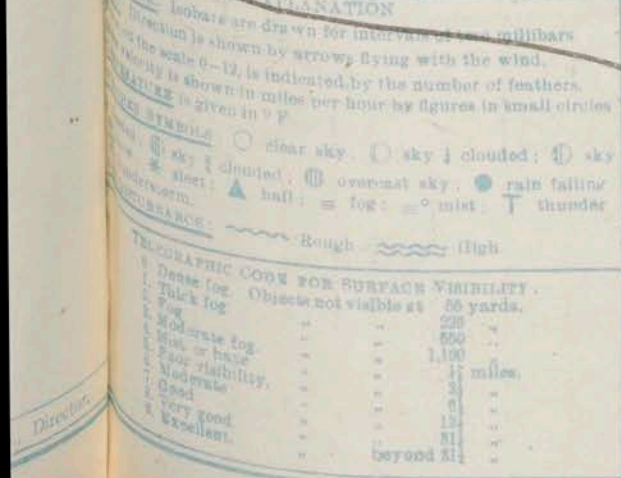 EXPLANATION
Isobars are drawn for intervals of two millibars
Direction is shown by arrows flying with the wind.
on the scale 0–12, is indicated by the number of feathers.
velocity is shown in miles per hour by figures in small circles
is given in ° F
SYMBOLS clear sky. sky ¼ clouded; sky
sky ¾ clouded; overcast sky; rain falling
sleet; hail; fog; mist. T thunder
DISTURBANCE: Rough High
TELEGRAPHIC CODE FOR SURFACE VISIBILITY.
0. Dense fog. Objects not visible at 55 yards.
1. Thick fog " " 220 "
2. Fog " " 550 "
3. Moderate fog " " 1,100 "
4. Mist, or haze " " miles.
5. Poor visibility, " " "
6. Moderate " " "
7. Good " " "
8. Very good " " "
9. Excellent. " beyond "
Director.